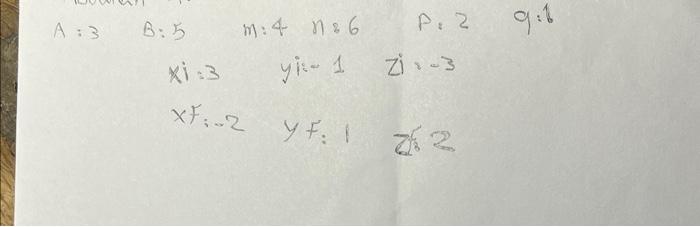 A : 3 B : 5 m : 4 n : 6 P : 2 q : 6
xi : 3 yi : - 1 zi : -3
xF : -2 yF : 1 zF : 2